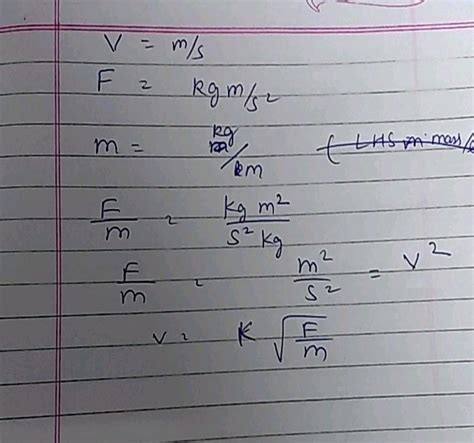 V = m/s
F = kgm/s²
m = kg/m (LHS m mass/
F/m = kg m²/s² kg
F/m = m²/s² = v²
v = K √F/m